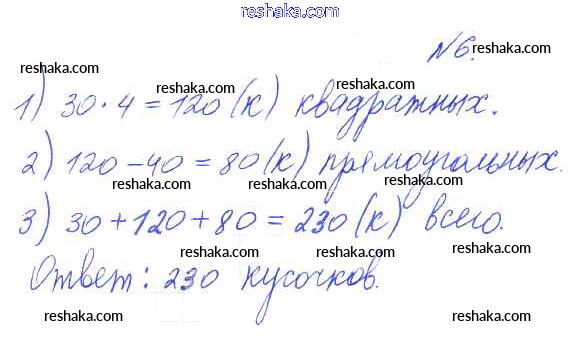 reshaka.com
№6.
reshaka.com
reshaka.com reshaka.com reshaka.com
1) 30·4=120(к) квадратных.
reshaka.com reshaka.com reshaka.com
2) 120-40=80(к) прямоугольных.
reshaka.com reshaka.com reshaka.com
3) 30+120+80=230(к) всего.
reshaka.com reshaka.com reshaka.com
Ответ: 230 кусочков.
reshaka.com reshaka.com reshaka.com